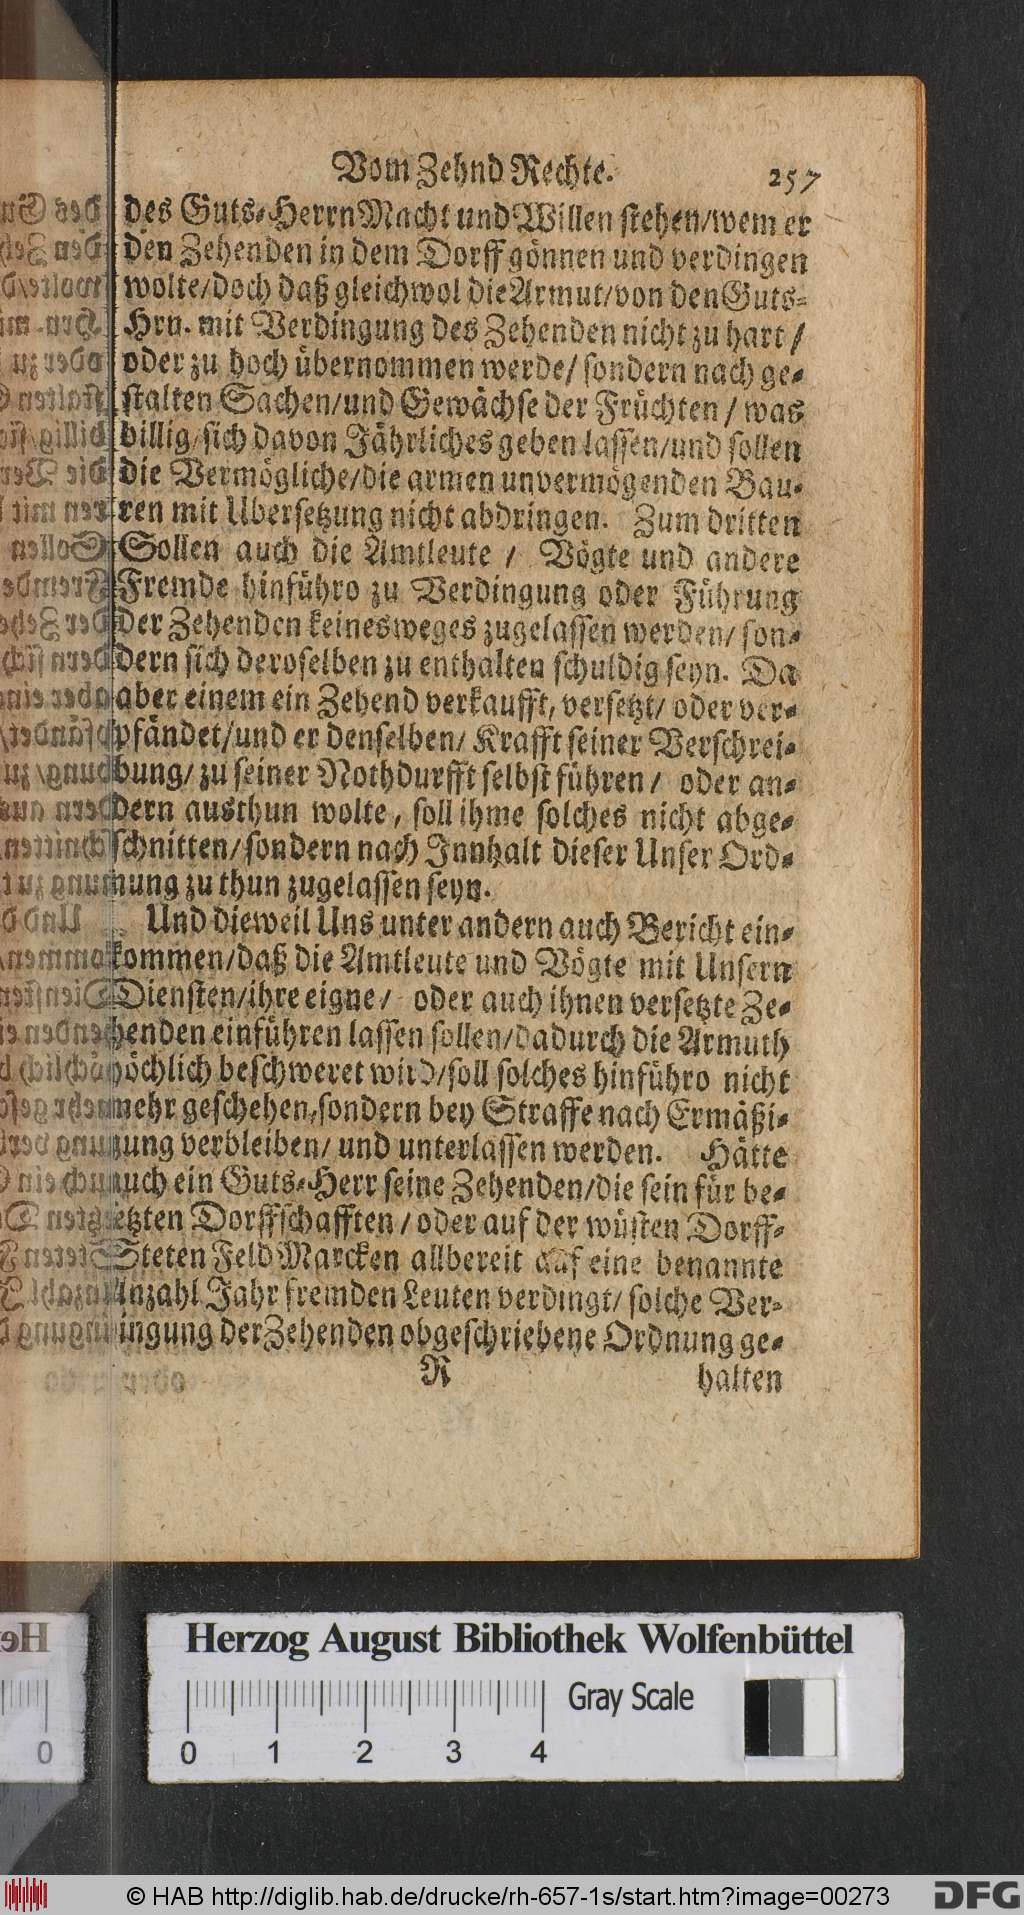 Vom Zehnd Rechte. 257
des Guts-Herrn Macht und Willen stehen/wem er
den Zehenden in dem Dorff gönnen und verdingen
wolte/doch daß gleichwol die Armut/von den Guts-
Hrn. mit Verdingung des Zehenden nicht zu hart/
oder zu hoch übernommen werde/sondern nach ge-
stalten Sachen/und Gewächse der Früchten/was
billig/sich davon Jährliches geben lassen/und sollen
die Vermögliche/die armen unvermögenden Bau-
ren mit Ubersetzung nicht abdringen. Zum dritten
Sollen auch die Amtleute/ Vögte und andere
Fremde hinführo zu Verdingung oder Führung
der Zehenden keinesweges zugelassen werden/son-
dern sich deroselben zu enthalten schuldig seyn. Da
aber einem ein Zehend verkaufft, versetzt/oder ver-
pfändet/und er denselben/Krafft seiner Verschrei-
bung/zu seiner Nothdurfft selbst führen/ oder an-
dern austhun wolte, soll ihme solches nicht abge-
schnitten/sondern nach Innhalt dieser Unser Ord-
nung zu thun zugelassen seyn.
Und dieweil Uns unter andern auch Bericht ein-
kommen/daß die Amtleute und Vögte mit Unsern
Diensten/ihre eigne/ oder auch ihnen versetzte Ze-
henden einführen lassen sollen/dadurch die Armuth
höchlich beschweret wird/soll solches hinführo nicht
mehr geschehen,sondern bey Straffe nach Ermäßi-
gung verbleiben/und unterlassen werden. Hätte
auch ein Guts-Herr seine Zehenden/die sein für be-
setzten Dorffschafften/oder auf der wüsten Dorff-
Steten Feld Marcken allbereit auf eine benannte
Anzahl Jahr fremden Leuten verdingt/solche Ver-
dingung der Zehenden obgeschriebene Ordnung ge-
R halten
Herzog August Bibliothek Wolfenbüttel
Gray Scale
0 1 2 3 4
0
© HAB http://diglib.hab.de/drucke/rh-657-1s/start.htm?image=00273
DFG